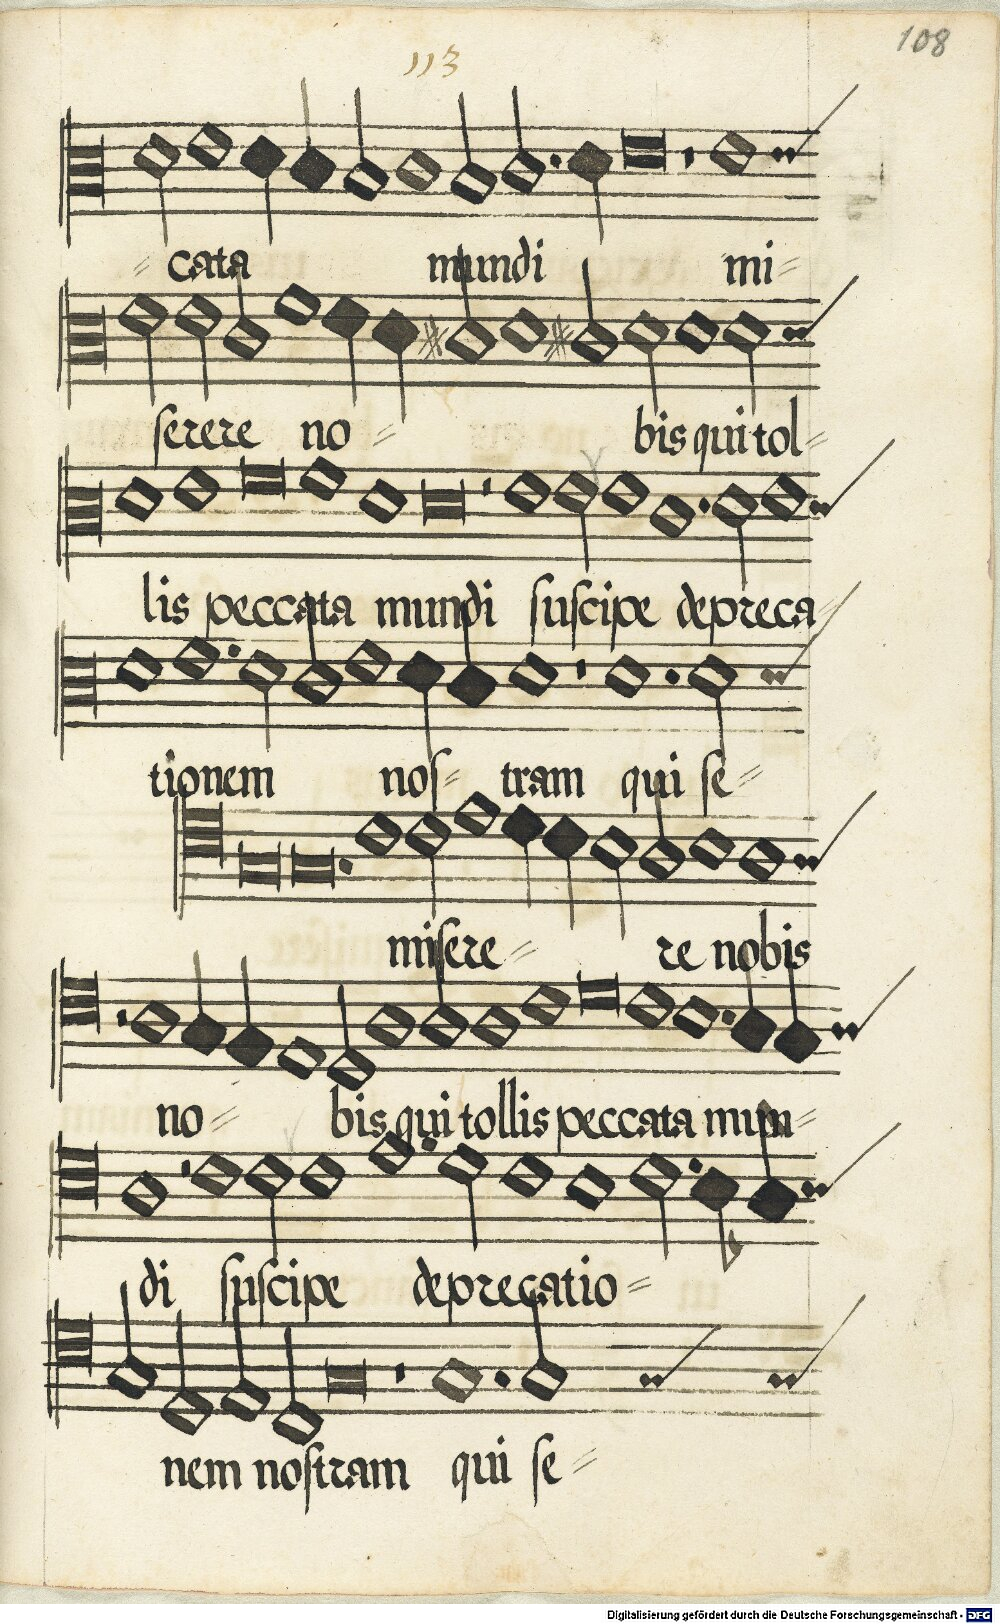 108
113
cata mundi mi
serere no bis qui tol
lis peccata mundi suscipe depreca
tionem nos tram qui se
misere re nobis
no bis qui tollis peccata mun
di suscipe deprecatio
nem nostram qui se
Digitalisierung gefördert durch die Deutsche Forschungsgemeinschaft - DFG